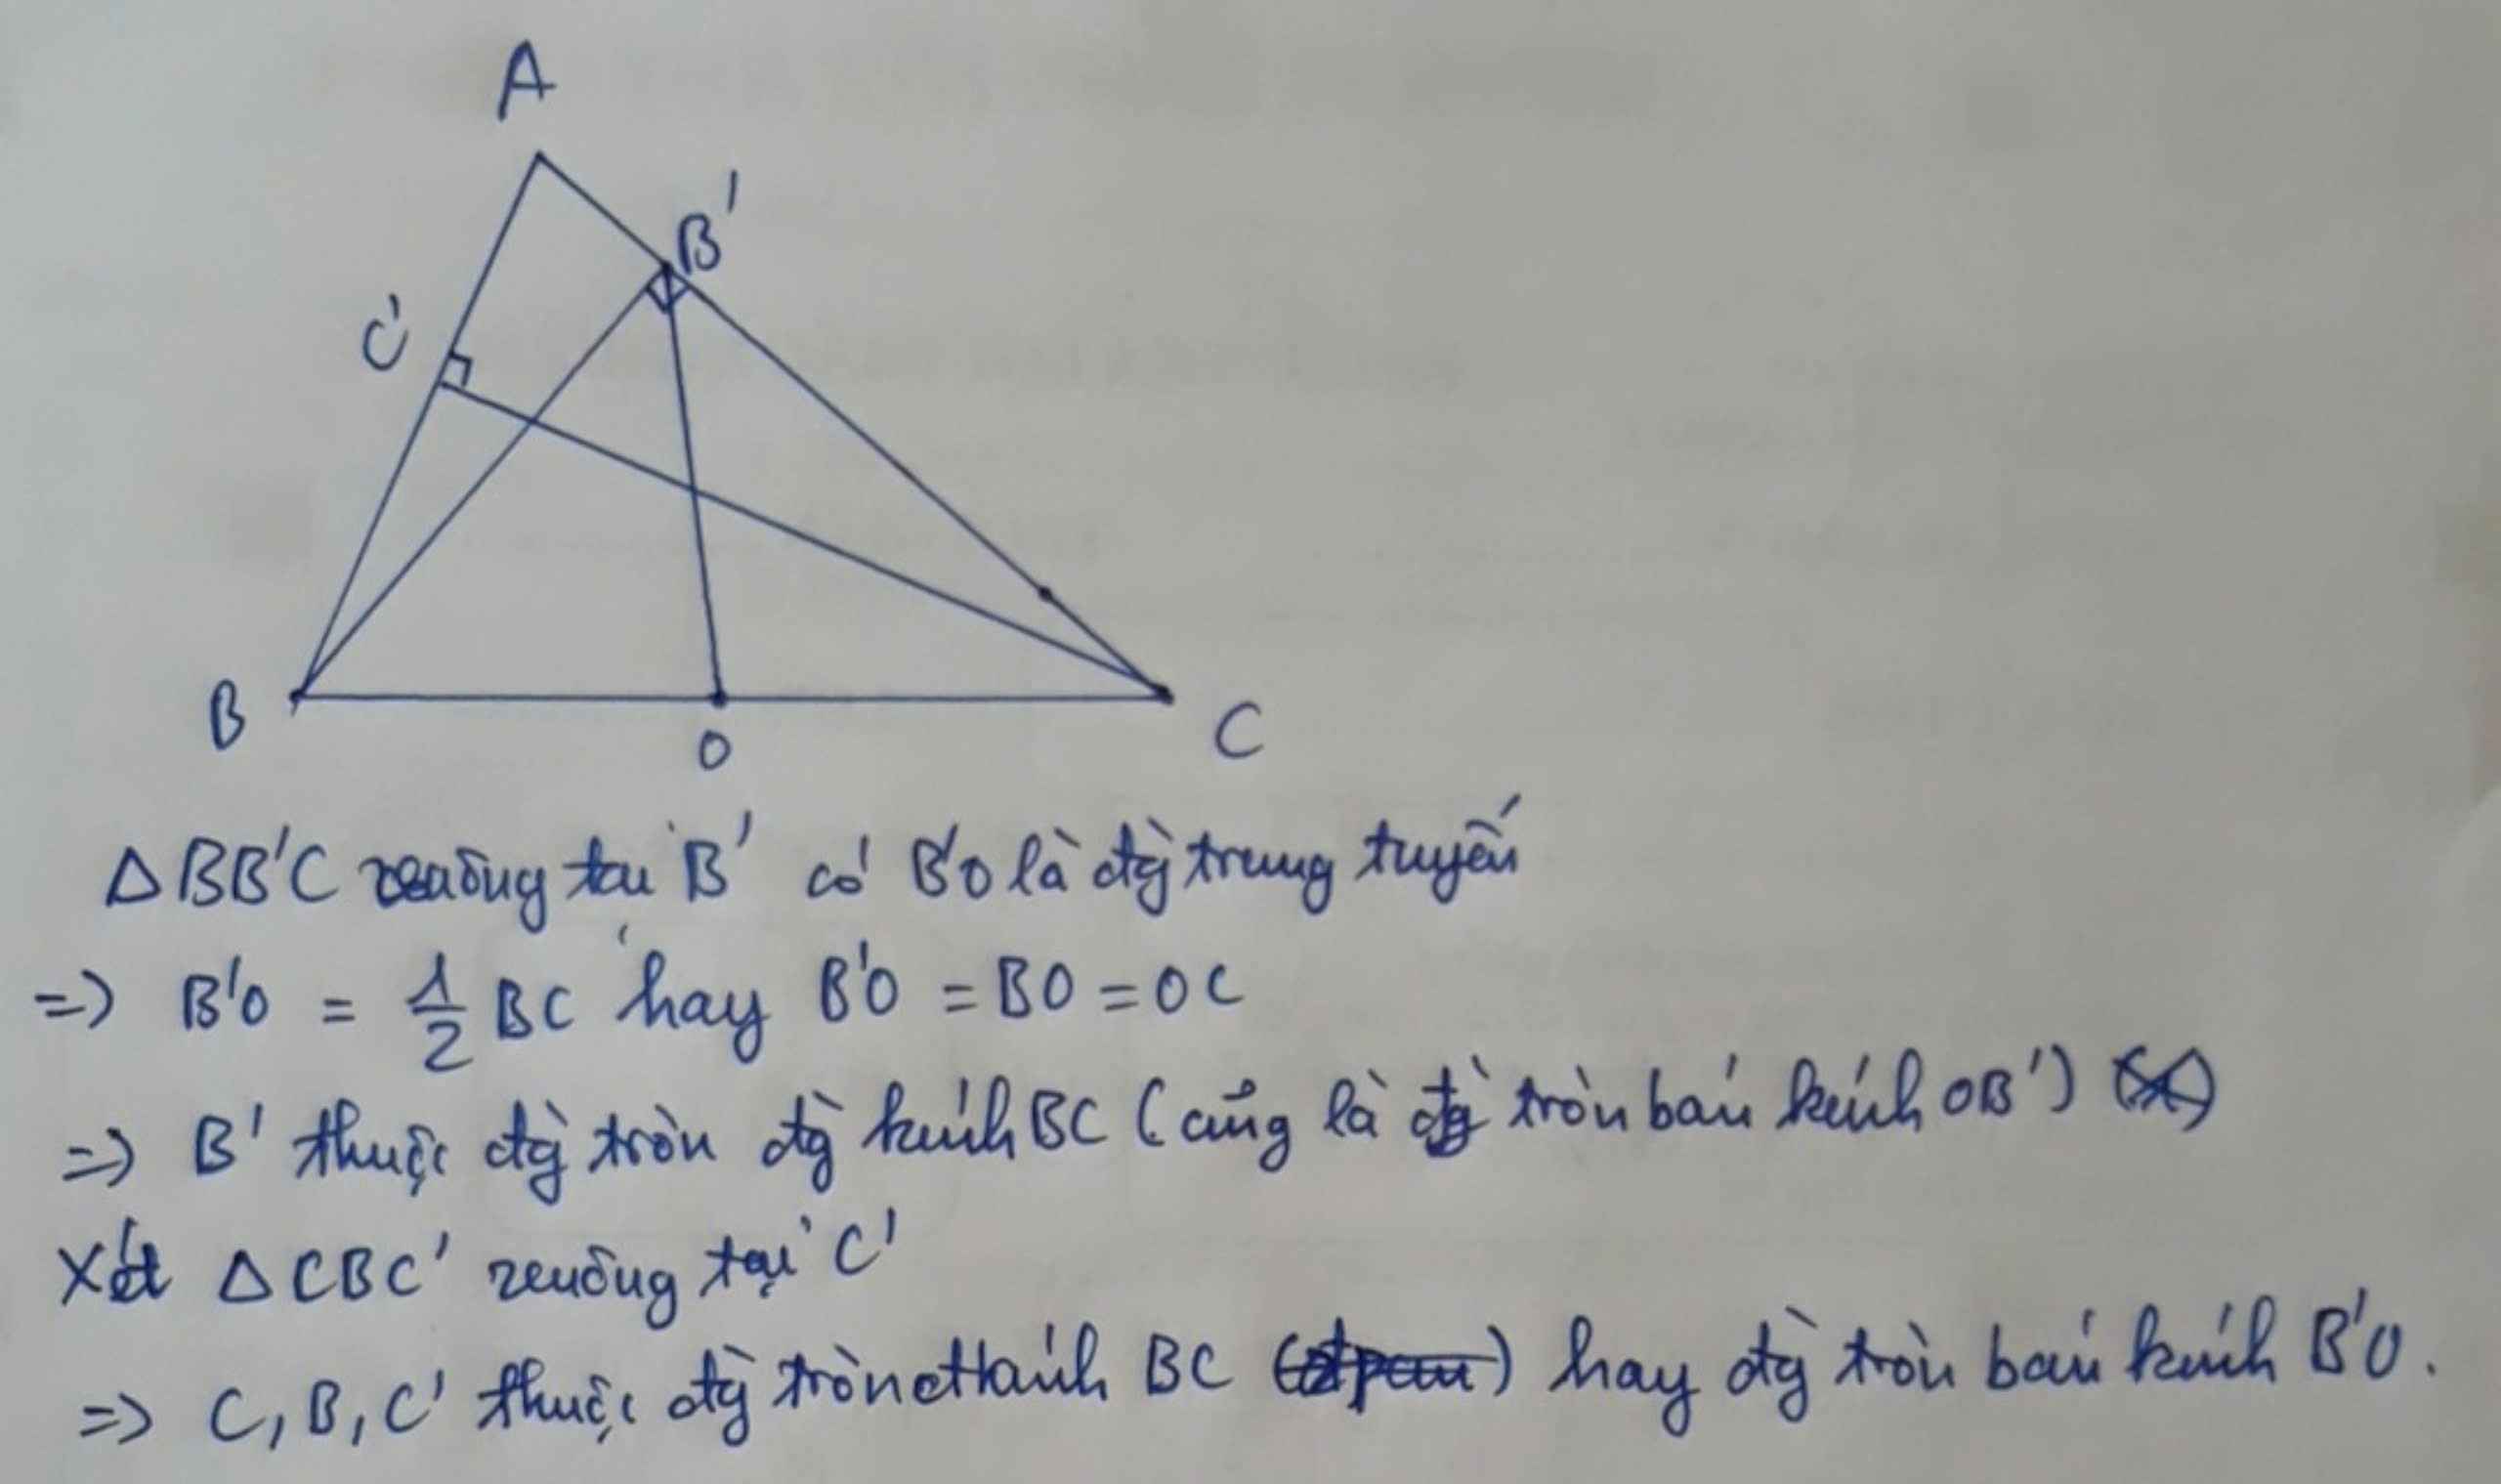 A
B'
C'
B
O
C
Δ BB'C vuông tại B' có B'O là đg̀ trung tuyến
=> B'O = 1/2 BC hay B'O = BO = OC
=> B' thuộc đg̀ tròn đg̀ kính BC (cũng là đg̀ tròn bán kính OB') (*)
Xét Δ CBC' vuông tại C'
=> C, B, C' thuộc đg̀ tròn BC hay đg̀ tròn bán kính B'O.